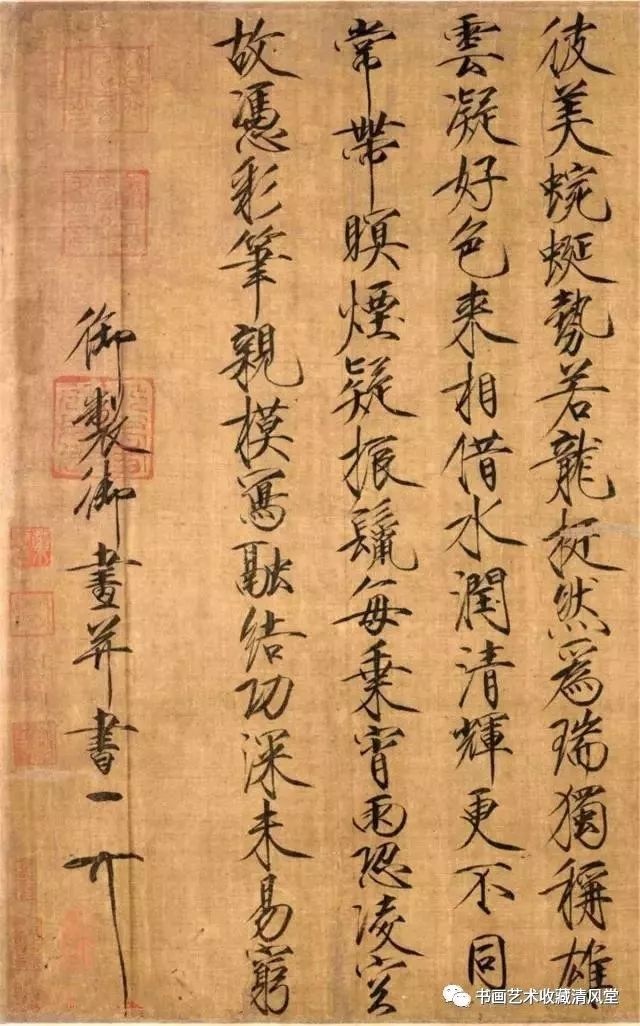 彼美蜿蜒勢若龍挺然為瑞獨稱雄
雲凝好色来相借水潤清輝更不同
常帶暝煙疑振鬣每乗宵雨恐凌空
故憑彩筆親模寫融結功深未易窮
御製御畫并書
书画艺术收藏清风堂